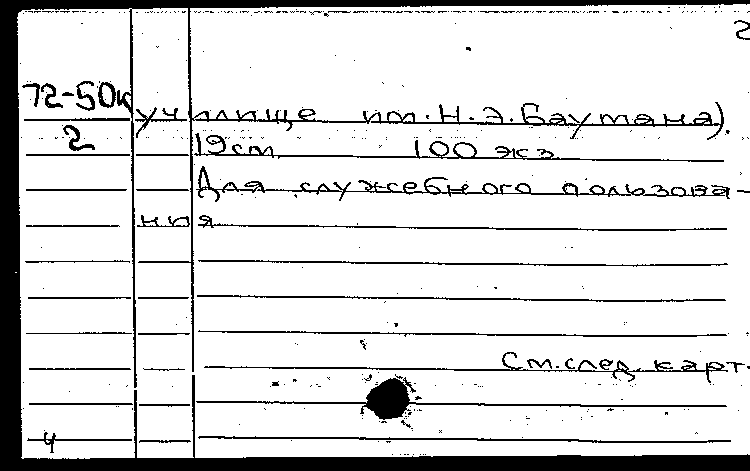 2
72-50к
2
училище им. Н. Э. Баумана).
19 см. 100 экз.
Для служебного пользова-
ния
См. след. карт.
4